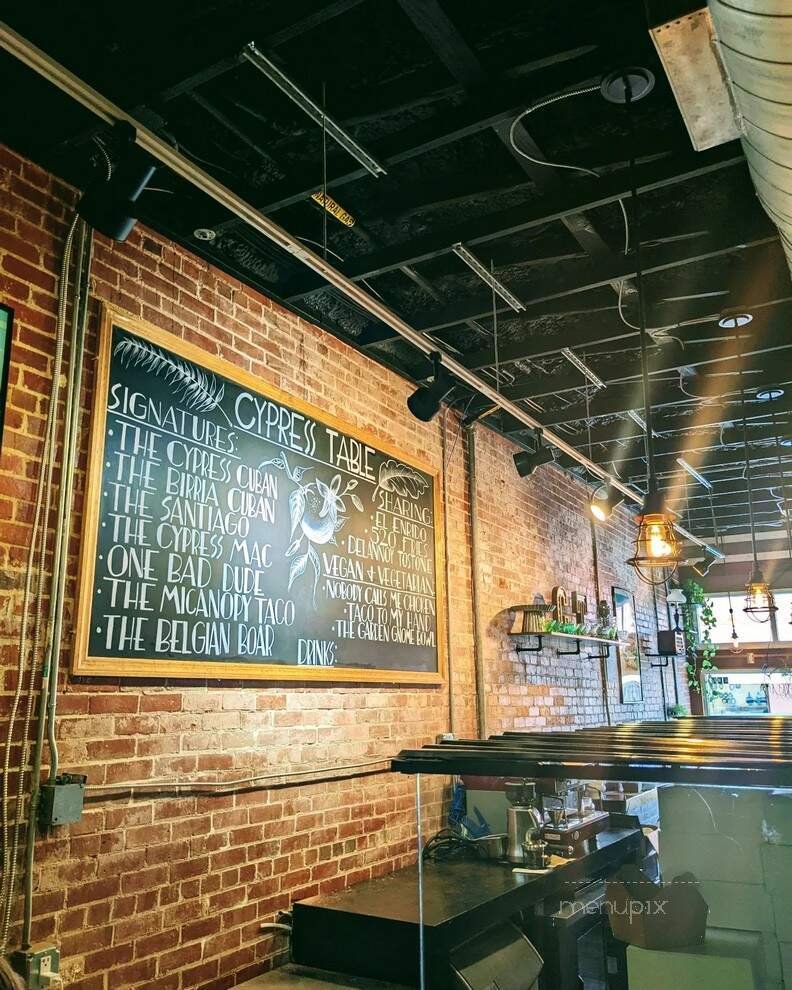 NATURAL GAS
CYPRESS TABLE
SIGNATURES:
• THE CYPRESS CUBAN
• THE BIRRIA CUBAN
• THE SANTIAGO
• THE CYPRESS MAC
• ONE BAD DUDE
• THE MICANOPY TACO
• THE BELGIAN BOAR
SHARING:
• EL ENRIDO
• 520 FRIES
• DELANNOY TOSTONE
VEGAN + VEGETARIAN
• NOBODY CALLS ME CHICKEN
• TACO TO MY HAND
• THE GARDEN GNOME BOWL
DRINKS:
menupix